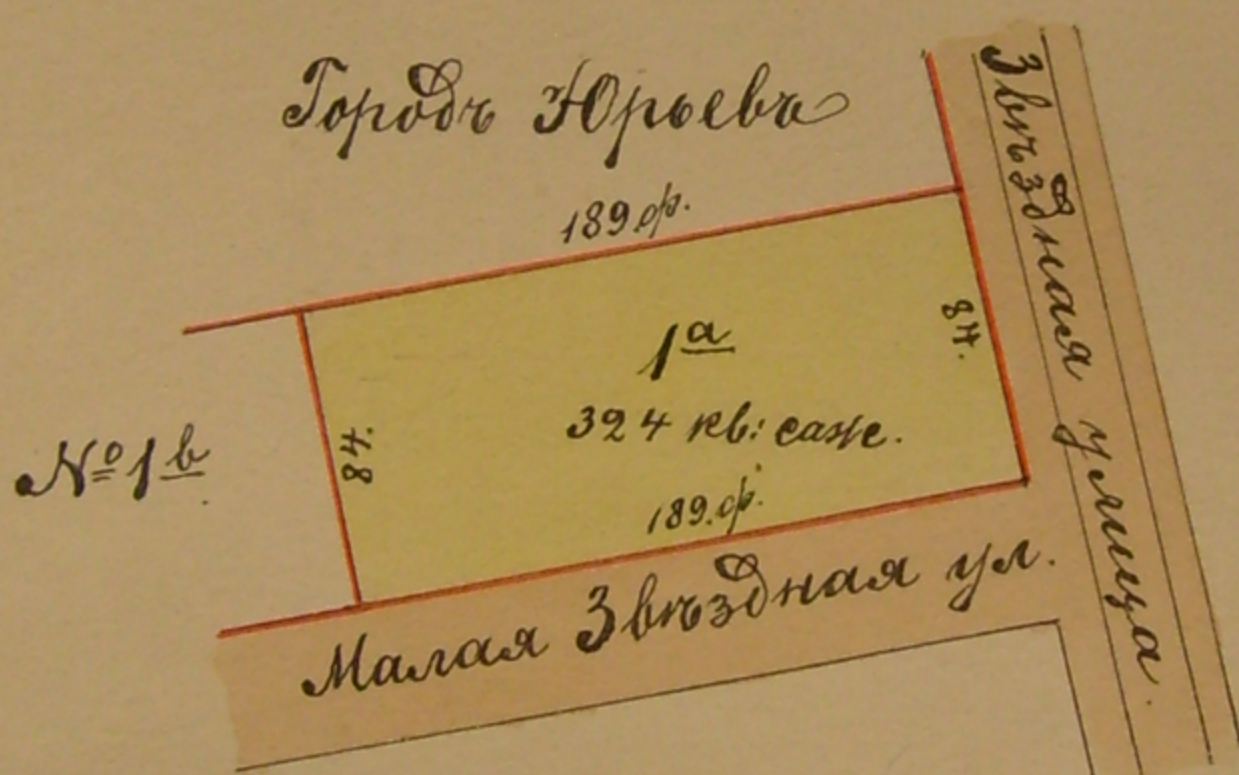 Городъ Юрьевъ
Звѣздная улица.
189 ф.
1а
84.
324 кв: саж.
84.
№ 1в
189. ф.
Малая Звѣздная ул.